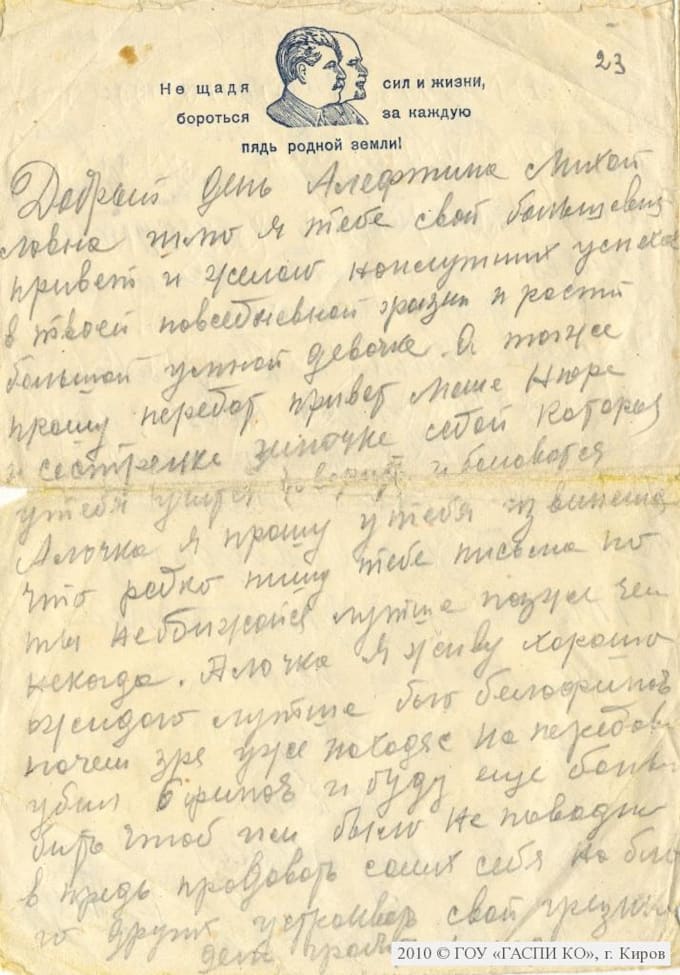 23
Не щадя сил и жизни,
бороться за каждую
пядь родной земли!
Добрый день Алефтина Михай
ловна шлю я тебе свой большевис
привет и желаю наилутших успехов
в твоей повседневной жизни и расти
большой умной девочке. А также
прошу передат привет маме Нюре
и сестренке Зиночке которая
у тебя учится и балуется
Алочка я прошу у тебя извинения
что редко пишу тебе письма но
ты необижайся лутше позже чем
некогда. Алочка я живу хорошо
ожидаю лутше бью белофинов
почем зря уже находяс на передовой
убил 6 финов и буду еще больше
бить чтоб им было не повадно
в предь продовать самих себя
го друг устраивать свой грязные
дела
2010 © ГОУ «ГАСПИ КО», г. Киров